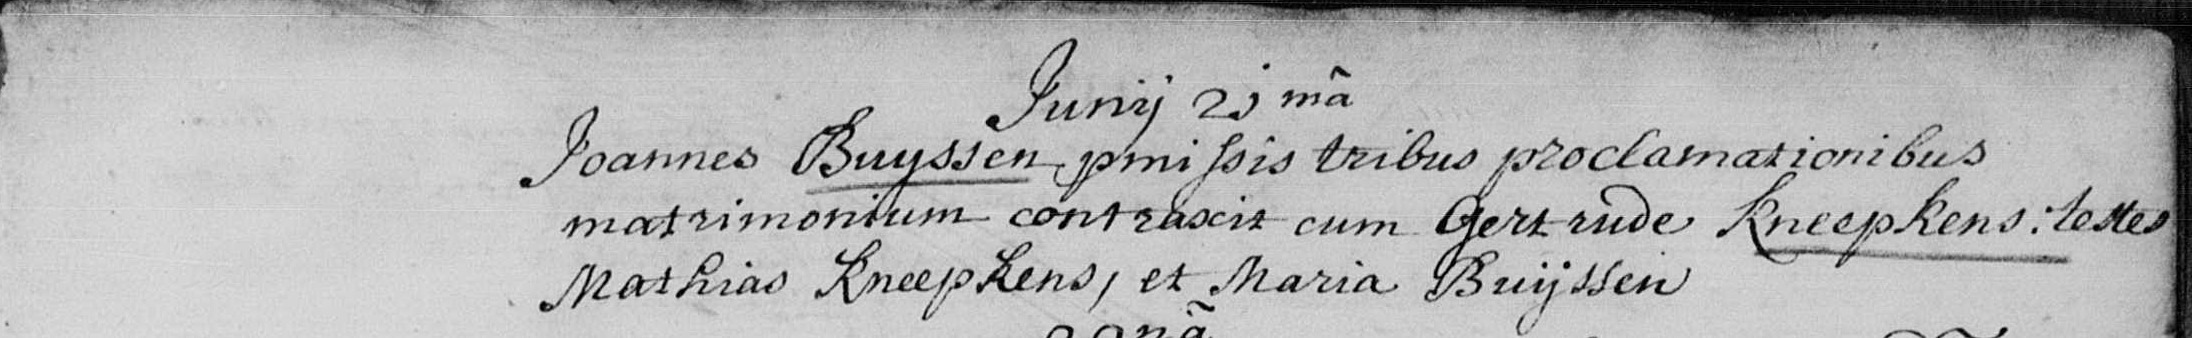 Junij 21 mã
Joannes Buyssen pmissis tribus proclamationibus
matrimonium contraxit cum Gertrude Kneepkens: testes
Mathias Kneepkens, et Maria Buijssen